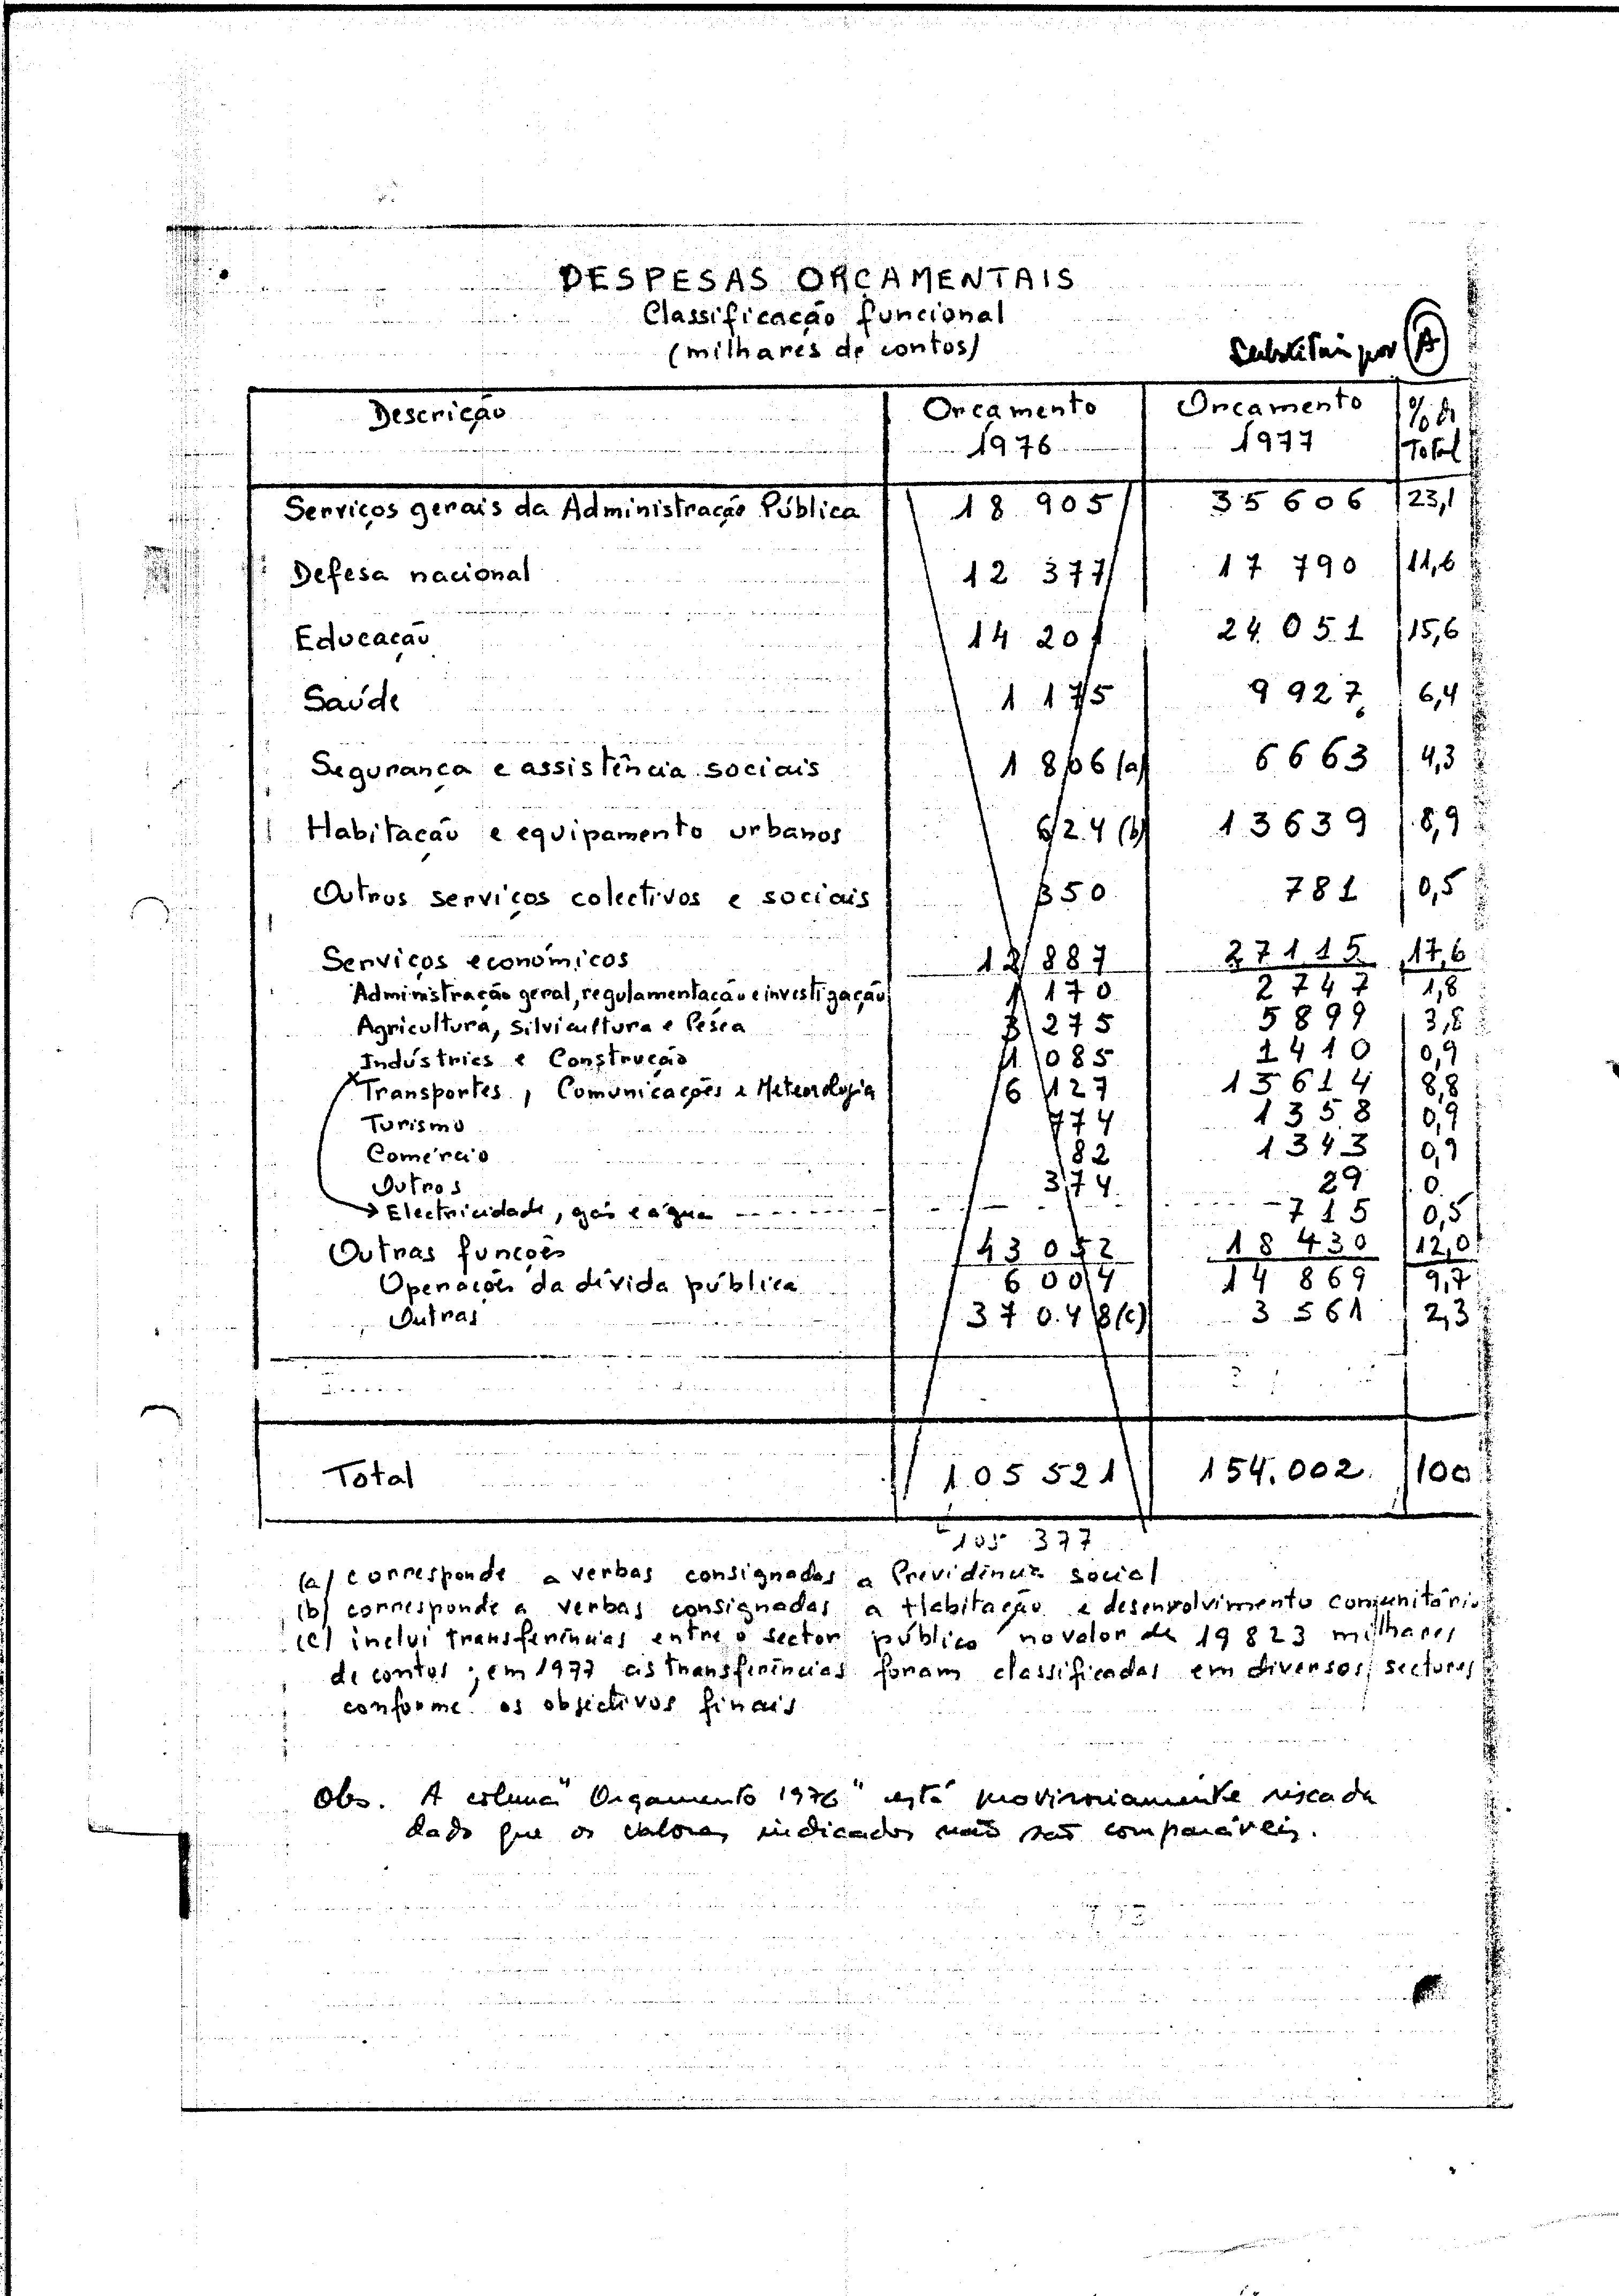 DESPESAS ORÇAMENTAIS
Classificação funcional
(milhares de contos)
Substituir por (A)
Descrição Orçamento 1976 Orçamento 1977 % do Total
Serviços gerais da Administração Pública 18 905 35 606 23,1
Defesa nacional 12 377 17 790 11,6
Educação 14 201 24 051 15,6
Saúde 1 175 9 927 6,4
Segurança e assistência sociais 1 806 (a) 6 663 4,3
Habitação e equipamento urbanos 624 (b) 13 639 8,9
Outros serviços colectivos e sociais 350 781 0,5
Serviços económicos 12 887 27 115 17,6
Administração geral, regulamentação e investigação 1 170 2 747 1,8
Agricultura, silvicultura e Pesca 3 275 5 899 3,8
Indústries e Construção 1 085 1 410 0,9
Transportes, Comunicações e Meteorologia 6 127 13 614 8,8
Turismo 774 1 358 0,9
Comércio 82 1 343 0,9
Outros 374 29 0
→ Electricidade, gás e água - - - - - - - 715 0,5
Outras funções 43 052 18 430 12,0
Operações da dívida pública 6 004 14 869 9,7
Outras 37 048 (c) 3 561 2,3
Total 105 521 154.002 100
105 377
(a) corresponde a verbas consignadas a Previdência social
(b) corresponde a verbas consignadas a Habitação e desenvolvimento comunitário
(c) inclui transferências entre o sector público no valor de 19 823 milhares
de contos; em 1977 as transferências foram classificadas em diversos sectores
conforme os objectivos finais
Obs. A coluna "Orçamento 1976" está provisoriamente riscada
dado que os valores indicados não são comparáveis.